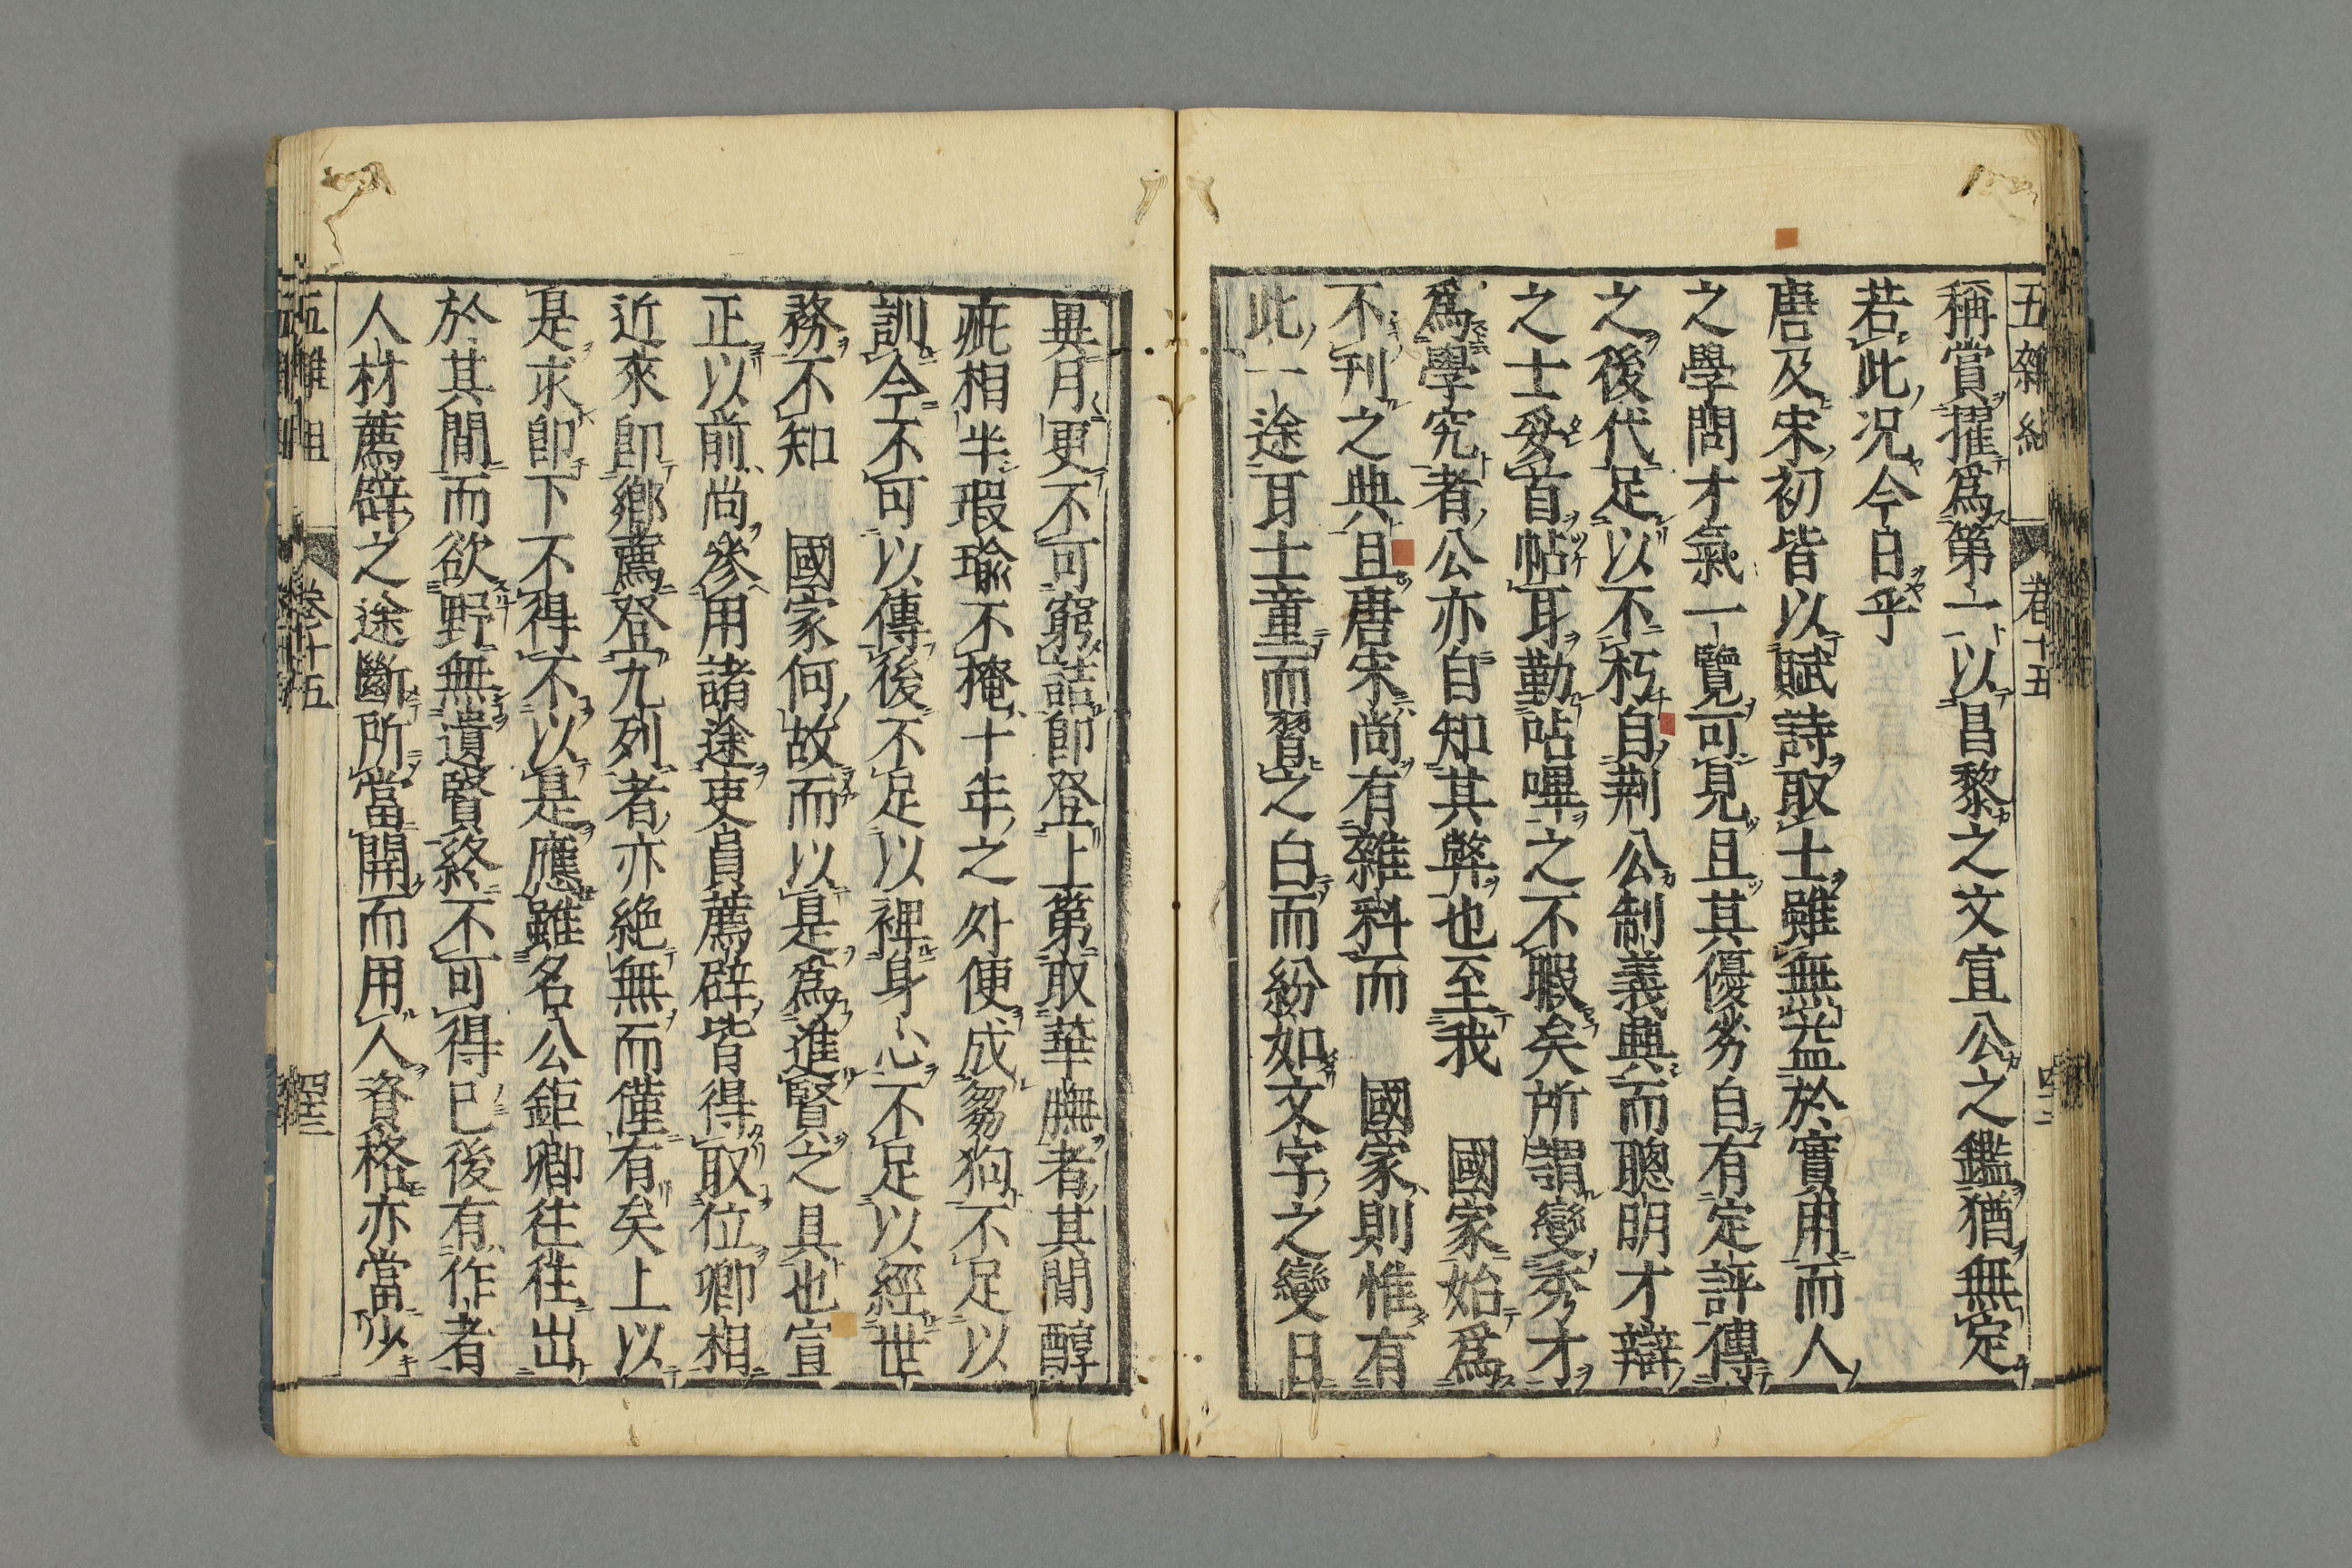 五雜組 卷十五 四十二
稱賞擢爲第一以昌黎之文宣公之鑑猶無定
若此况今日乎
唐及宋初皆以賦詩取士雖無益於實用而人
之學問才氣一覽可見且其優劣自有定評傳
之後代足以不朽自荆公制義典而聰明才辯
之士妥首帖耳勤呫嗶之不暇矣所謂變秀才
爲學究者公亦自知其弊也至我　國家始爲
不刊之典且唐宋尚有雜科而　國家則惟有
此一途耳士童而習之白而紛如文字之變日
異月更不可窮詰即登上第取華膴者其間醇
疵相半瑕瑜不掩十年之外便成芻狗不足以
訓今不可以傳後不足以裨身心不足以經世
務不知　國家何故而以是爲進賢之具也宣
正以前尚參用諸途吏員薦辟皆得取位卿相
近來即鄉薦登九列者亦絶無而僅有矣上以
是求即下不得不以是應雖名公鉅卿往往出
於其間而欲野無遺賢終不可得已後有作者
人材薦辟之途斷所當開而用人資格亦當少
五雜組 卷十五